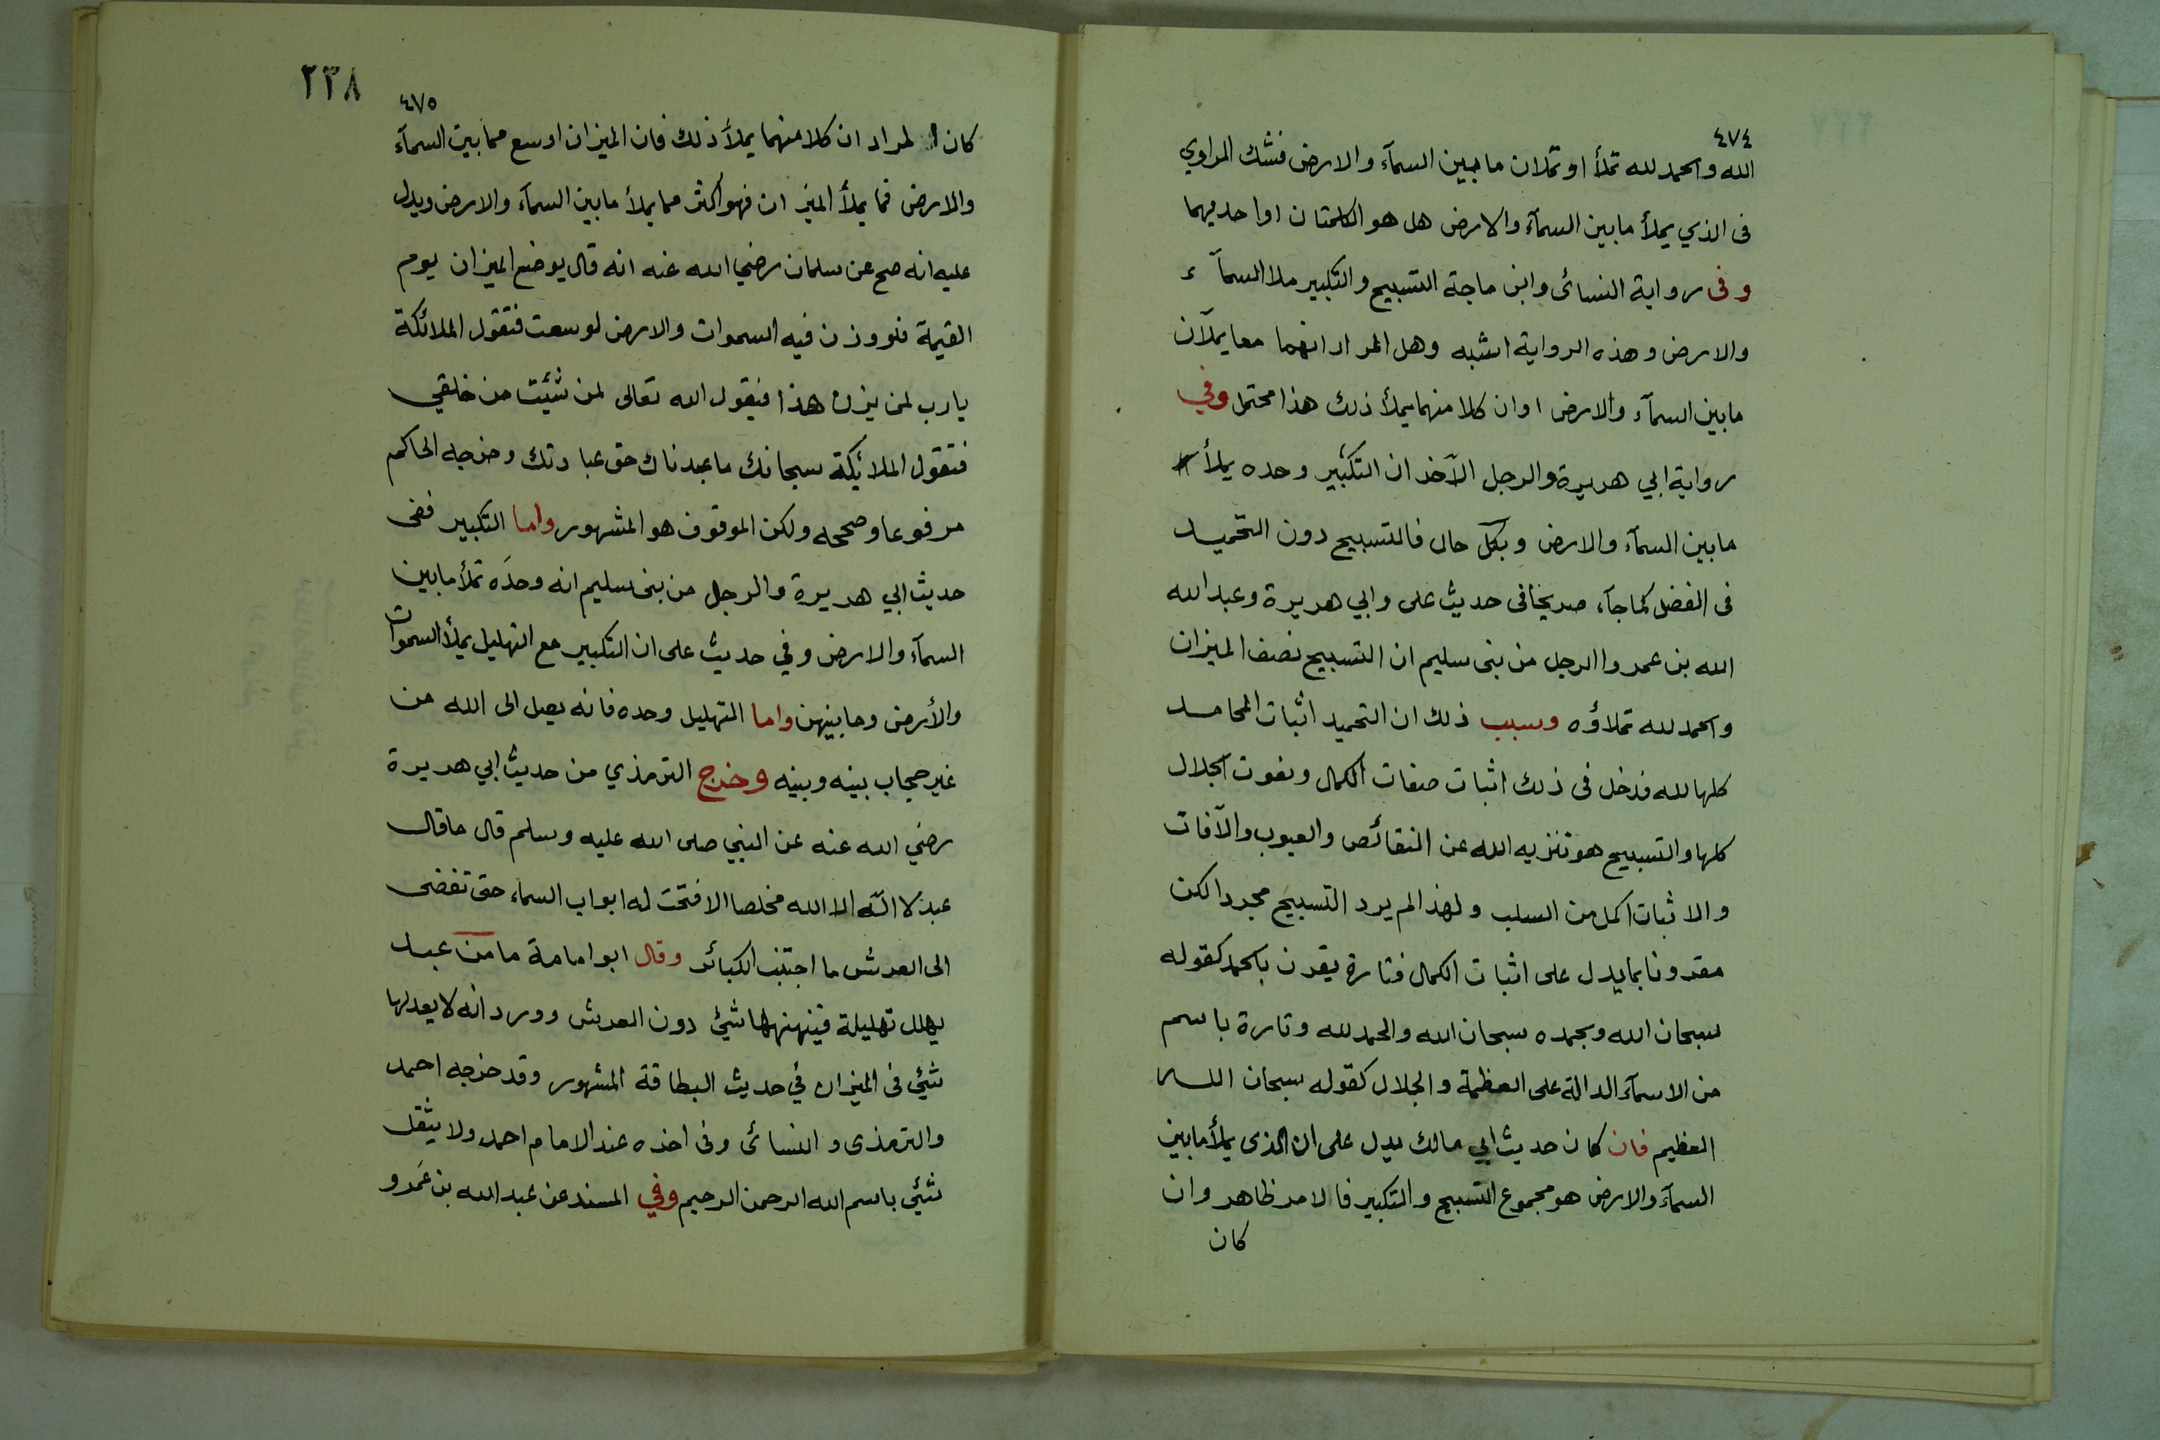 ٤٧٤
الله والحمد لله تملأ او تملان ما بين السمآء والارض فشك الراوي
فى الذي يملأ ما بين السمآء والارض هل هو الكلمتان او احديهما
وفى رواية النسائى وابن ماجة التسبيح والتكبير ملا السمآء
والارض وهذه الرواية اشبه وهل المراد انهما معا يملآن
ما بين السمآء والارض او ان كلا منهما يملأ ذلك هذا محتمل وفي
رواية ابي هريرة والرجل الآخر ان التكبير وحده يملأ
ما بين السمآء والارض وبكل حال فالتسبيح دون التحميد
فى الفضل كما جآء صريحا فى حديث على وابي هريرة وعبد الله
الله بن عمر واالرجل من بنى سليم ان التسبيح نصف الميزان
والحمد لله تملاؤه وسبب ذلك ان التحميد اثبات المحامد
كلها لله فدخل فى ذلك اثبات صفات الكمال ونعوت الجلال
كلها والتسبيح هو تنزيه الله عن النقائص والعيوب والآفات
والاثبات اكمل من السلب ولهذا لم يرد التسبيح مجردا لكن
مقرونا بما يدل على اثبات الكمال فتارة يقرن بالحمد كقوله
سبحان الله وبحمده سبحان الله والحمد لله وتارة باسم
من الاسمآء الدالة على العظمة والجلال كقوله سبحان الله
العظيم فان كان حديث ابي مالك يدل على ان الذى يملأ ما بين
السمآء والارض هو مجموع التسبيح والتكبير فالامر ظاهر وان
كان
٢٣٨
٤٧٥
كان المراد ان كلا منهما يملأ ذلك فان الميزان اوسع مما بين السمآء
والارض فما يملأ الميزان فهو اكثر مما يملأ ما بين السمآء والارض ويدل
عليه انه صح عن سلمان رضي الله عنه انه قال يوضع الميزان يوم
القيمة فلو وزن فيه السموات والارض لوسعت فتقول الملائكة
يا رب لمن يزن هذا فيقول الله تعالى لمن شئت من خلقي
فتقول الملائكة سبحانك ما عبدناك حق عبادتك وخرجه الحاكم
مرفوعا وصححه ولكن الموقوف هو المشهور واما التكبير ففى
حديث ابي هريرة والرجل من بنى سليم انه وحدَه تملأ ما بين
السمآء والارض وفي حديث على ان التكبير مع التهليل يملأ السموات
والأرض وما بينهن واما التهليل وحده فانه يصل الى الله من
غير حجاب بينه وبينه وخرج الترمذي من حديث ابي هريرة
رضي الله عنه عن النبي صلى الله عليه وسلم قال ما قال
عبد لا اله الا الله مخلصا الا فتحت له ابواب السماء حتى تفضى
الى العرش ما اجتنب الكبائر وقال ابو امامة ما من عبد
يهلل تهليلة فينهنهها شئ دون العرش وورد انه لا يعدلها
شئي فى الميزان في حديث البطاقة المشهور وقد خرجه احمد
والترمذى والنسائى وفى اخره عند الامام احمد ولا يثقل
شئي باسم الله الرحمن الرحيم وفي المسند عن عبد الله بن عَمرو